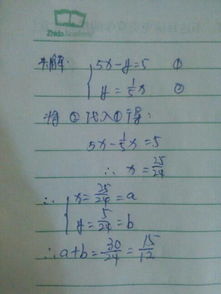 Zhido Academy
解:
5x-y=5 ①
y=1/5x ②
将②代入①得:
5x-1/5x=5
∴ x=25/24
∴ x=25/24=a
y=5/24=b
∴a+b=30/24=15/12